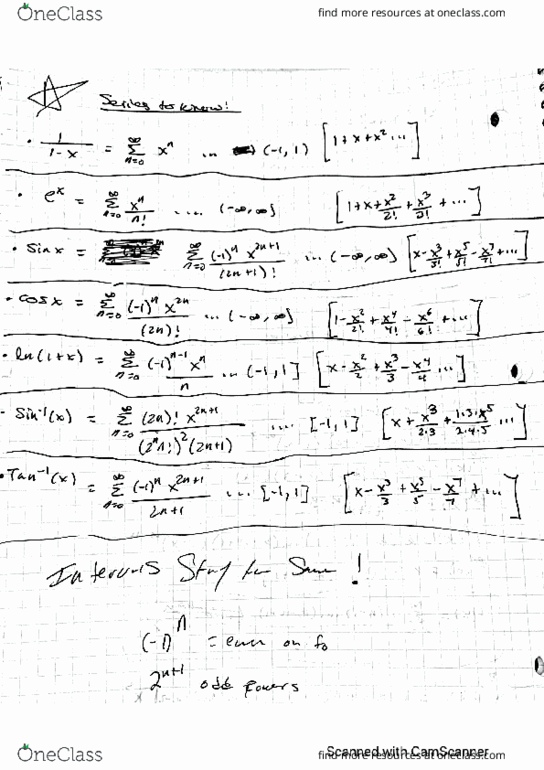 OneClass find more resources at oneclass.com
Series to know!
• 1/(1-x) = ∞Σn=0 x^n ... (-1, 1) [1+x+x² ...]
• e^x = ∞Σn=0 x^n/n! .... (-∞,∞) [1+x+x²/2!+x³/3!+ ...]
• Sinx = ∞Σn=0 (-1)^n x^(2n+1)/(2n+1)! ... (-∞,∞) [x-x³/3!+x⁵/5!-x⁷/7!+...]
• cosx = ∞Σn=0 (-1)^n x^(2n)/(2n)! ... (-∞,∞) [1-x²/2!+x⁴/4!-x⁶/6!+...]
• ln(1+x) = ∞Σn=0 (-1)^(n-1) x^n/n ... (-1,1] [x-x²/2+x³/3-x⁴/4...]
- Sin⁻¹(x) = ∞Σn=0 (2n)! x^(2n+1)/(2^n n!)²(2n+1) .... [-1,1] [x+x³/2·3+1·3·x⁵/2·4·5 ...]
• Tan⁻¹(x) = ∞Σn=0 (-1)^n x^(2n+1)/2n+1 ... [-1,1] [x-x³/3+x⁵/5-x⁷/7+...]
Intervals Stay the Same!
(-1)^n = even
2^(n+1) odd powers
Scanned with CamScanner
OneClass find more resources at oneclass.com